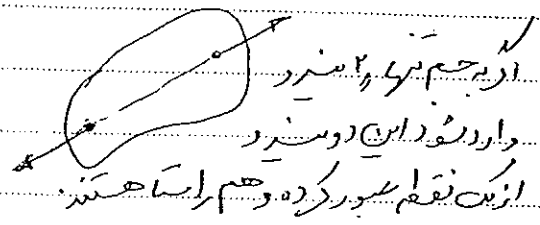 اگر به جسم تنها ۲ نیرو
وارد شود این دو نیرو
از یک نقطه عبور کرده و هم راستا هستند.